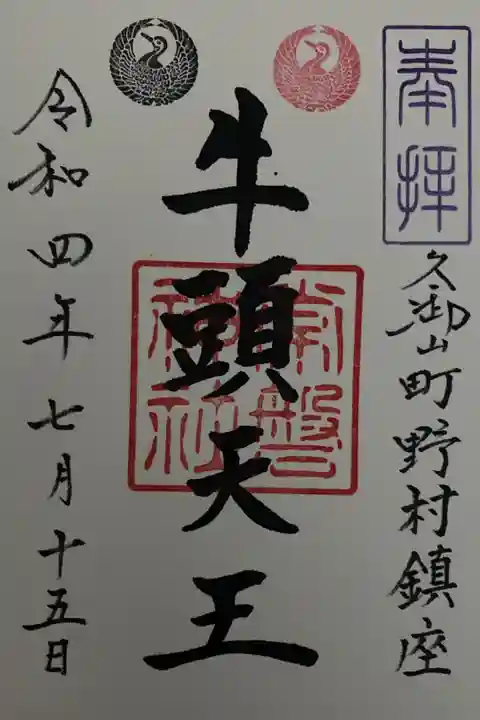 奉拝
久御山町野村鎮座
牛頭天王
常磐
神社
令和四年七月十五日